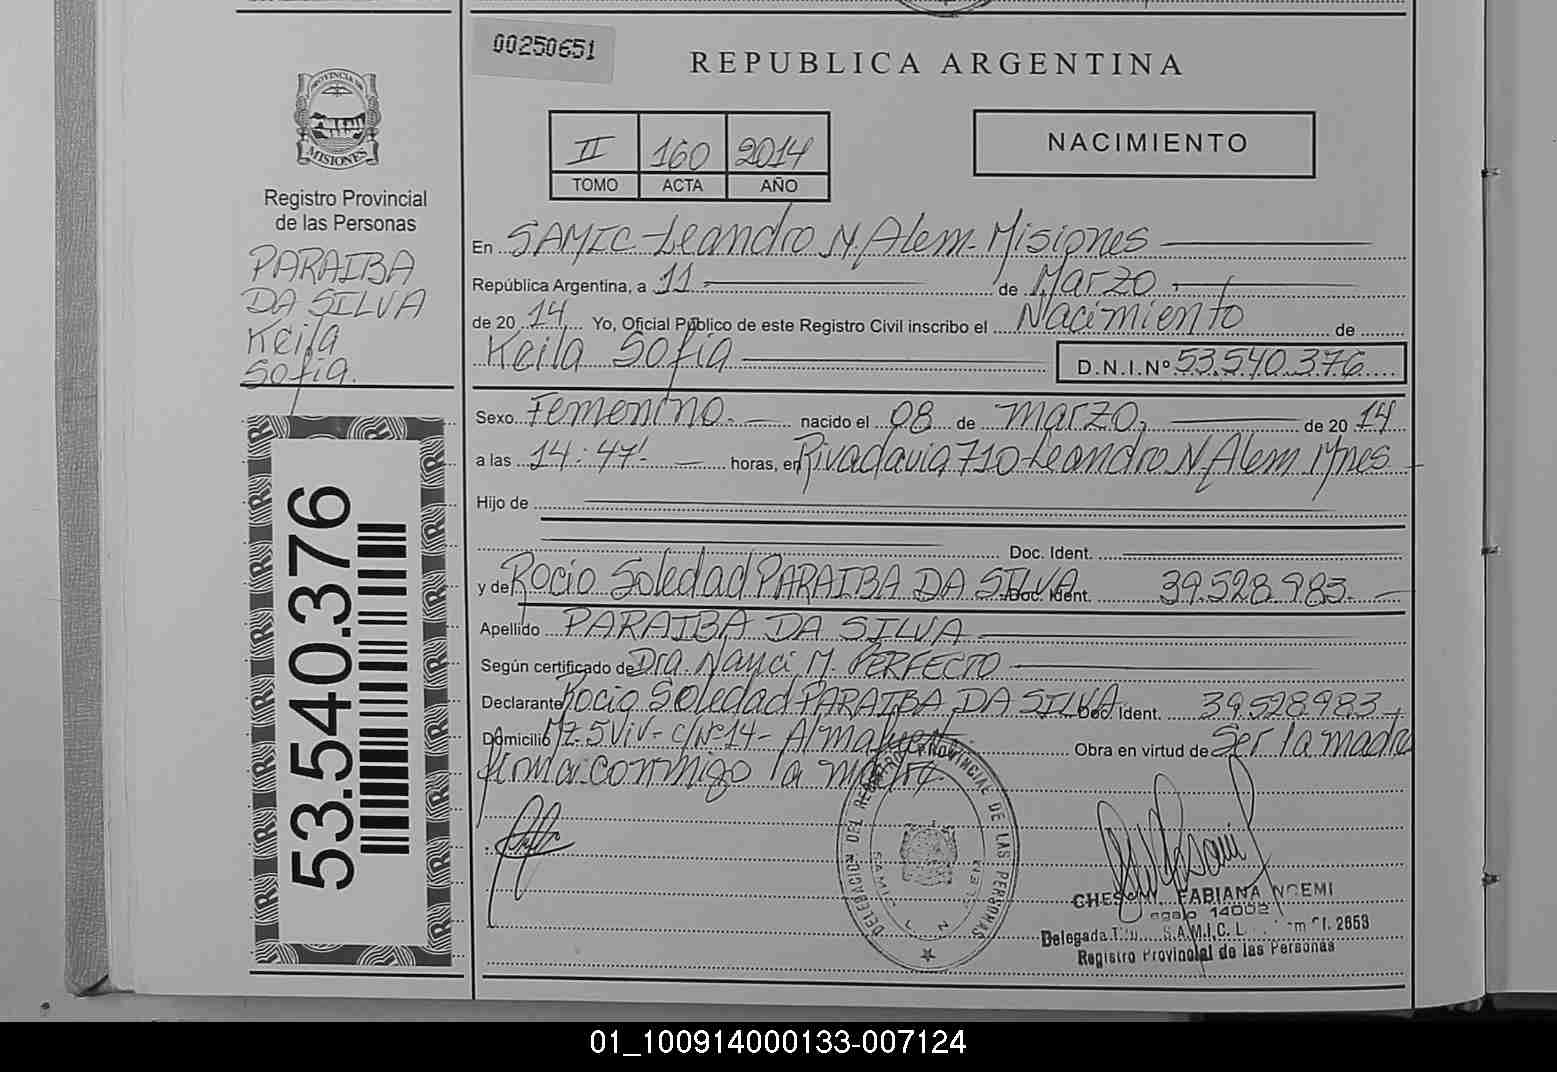 00250651
REPUBLICA ARGENTINA
PROVINCIA DE
MISIONES
Registro Provincial
de las Personas
PARAIBA
DA SILVA
Keila
Sofia.
53.540.376
II 160 2014
TOMO ACTA AÑO
NACIMIENTO
En SAMIC Leandro N. Alem - Misiones
República Argentina, a 11 de Marzo
de 20 14 Yo, Oficial Público de este Registro Civil inscribo el Nacimiento de
Keila Sofia D.N.I.Nº 53.540.376
Sexo Femenino. nacido el 08 de marzo, de 20 14
a las 14:47'. horas, en Rivadavia 710 Leandro N Alem Mnes
Hijo de
Doc. Ident.
y de Rocio Soledad PARAIBA DA SILVA Doc. Ident. 39.528.983.
Apellido PARAIBA DA SILVA
Según certificado de Dra. Nanci M. PERFECTO
Declarante Rocio Soledad PARAIBA DA SILVA Doc. Ident. 39.528.983
Domicilio Mz. 5 Viv- C/Nº14- Obra en virtud de Ser la madre
firma conmigo la madre
DELEGACION DEL REGISTRO PROVINCIAL DE LAS PERSONAS
SAMIC L N ALEM
FABIANA NOEMI
14002
Delegada S.A.M.I.C. L. 2653
Registro Provincial de las Personas
01_100914000133-007124